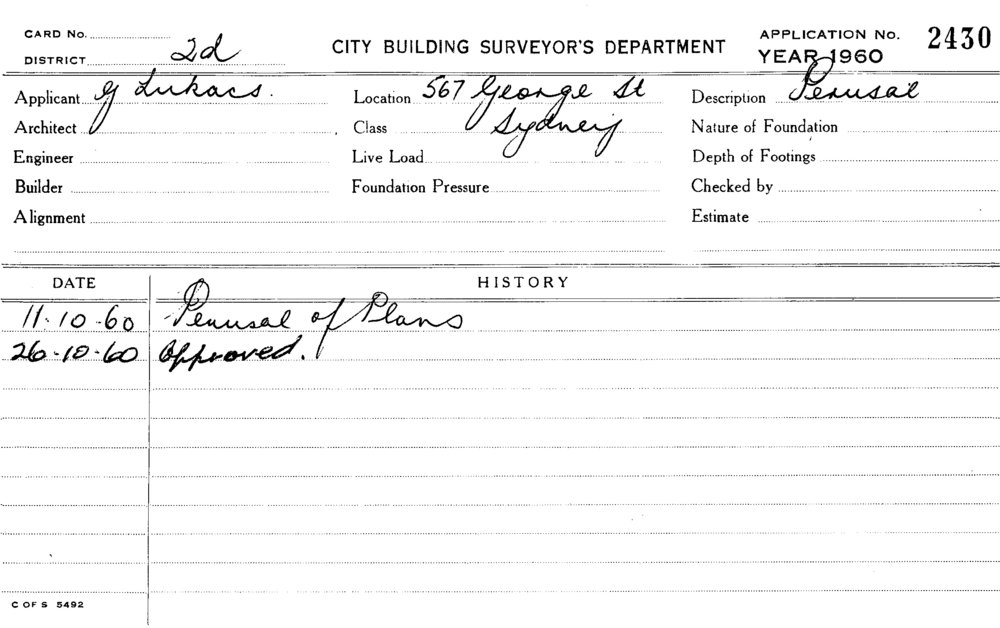 CARD No. CITY BUILDING SURVEYOR'S DEPARTMENT APPLICATION No. 2430
DISTRICT 2d YEAR 1960
Applicant G Lukacs. Location 567 George St Description Perusal
Architect Class Sydney Nature of Foundation
Engineer Live Load Depth of Footings
Builder Foundation Pressure Checked by
Alignment Estimate
DATE HISTORY
11-10-60 Perusal of Plans
26-10-60 Approved.
C OF S 5492